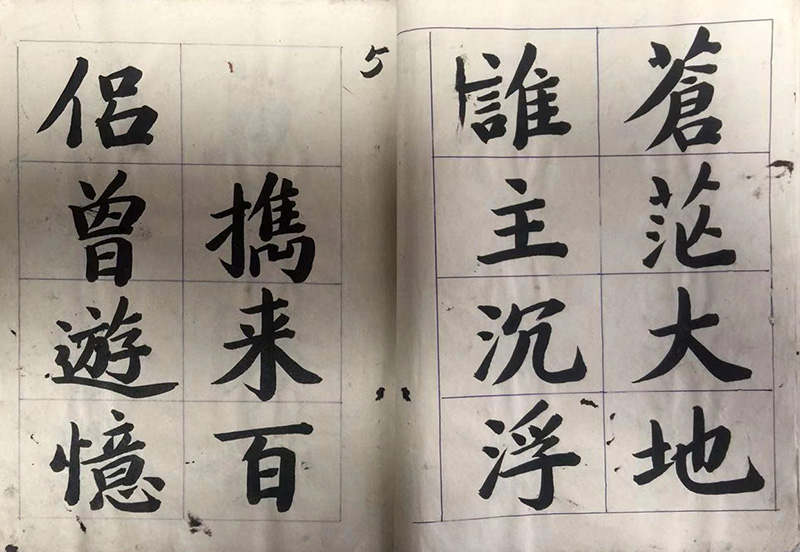 蒼茫大地
誰主沉浮
5
擕来百
侶曾遊憶